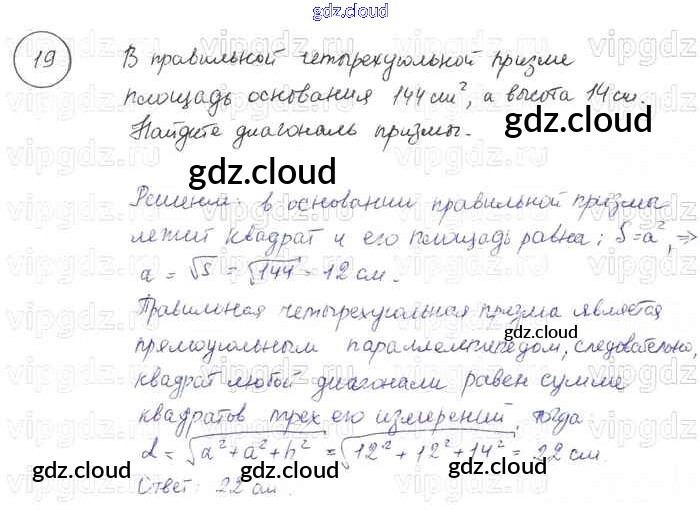 gdz.cloud
19 В правильной четырехугольной призме
площадь основания 144 см², а высота 14 см.
gdz.cloud
Найдите диагональ призмы.
gdz.cloud
Решение: в основании правильной призмы
лежит квадрат и его площадь равна: S=a², ⇒
a = √S = √144 = 12 см.
gdz.cloud
Правильная четырехугольная призма является
gdz.cloud
прямоугольным параллелепипедом, следовательно,
квадрат любой диагонали равен сумме
квадратов трех его измерений, тогда:
d = √a²+a²+h² = √12²+12²+14² = 22 см.
gdz.cloud gdz.cloud gdz.cloud
Ответ: 22 см.
gdz.cloud